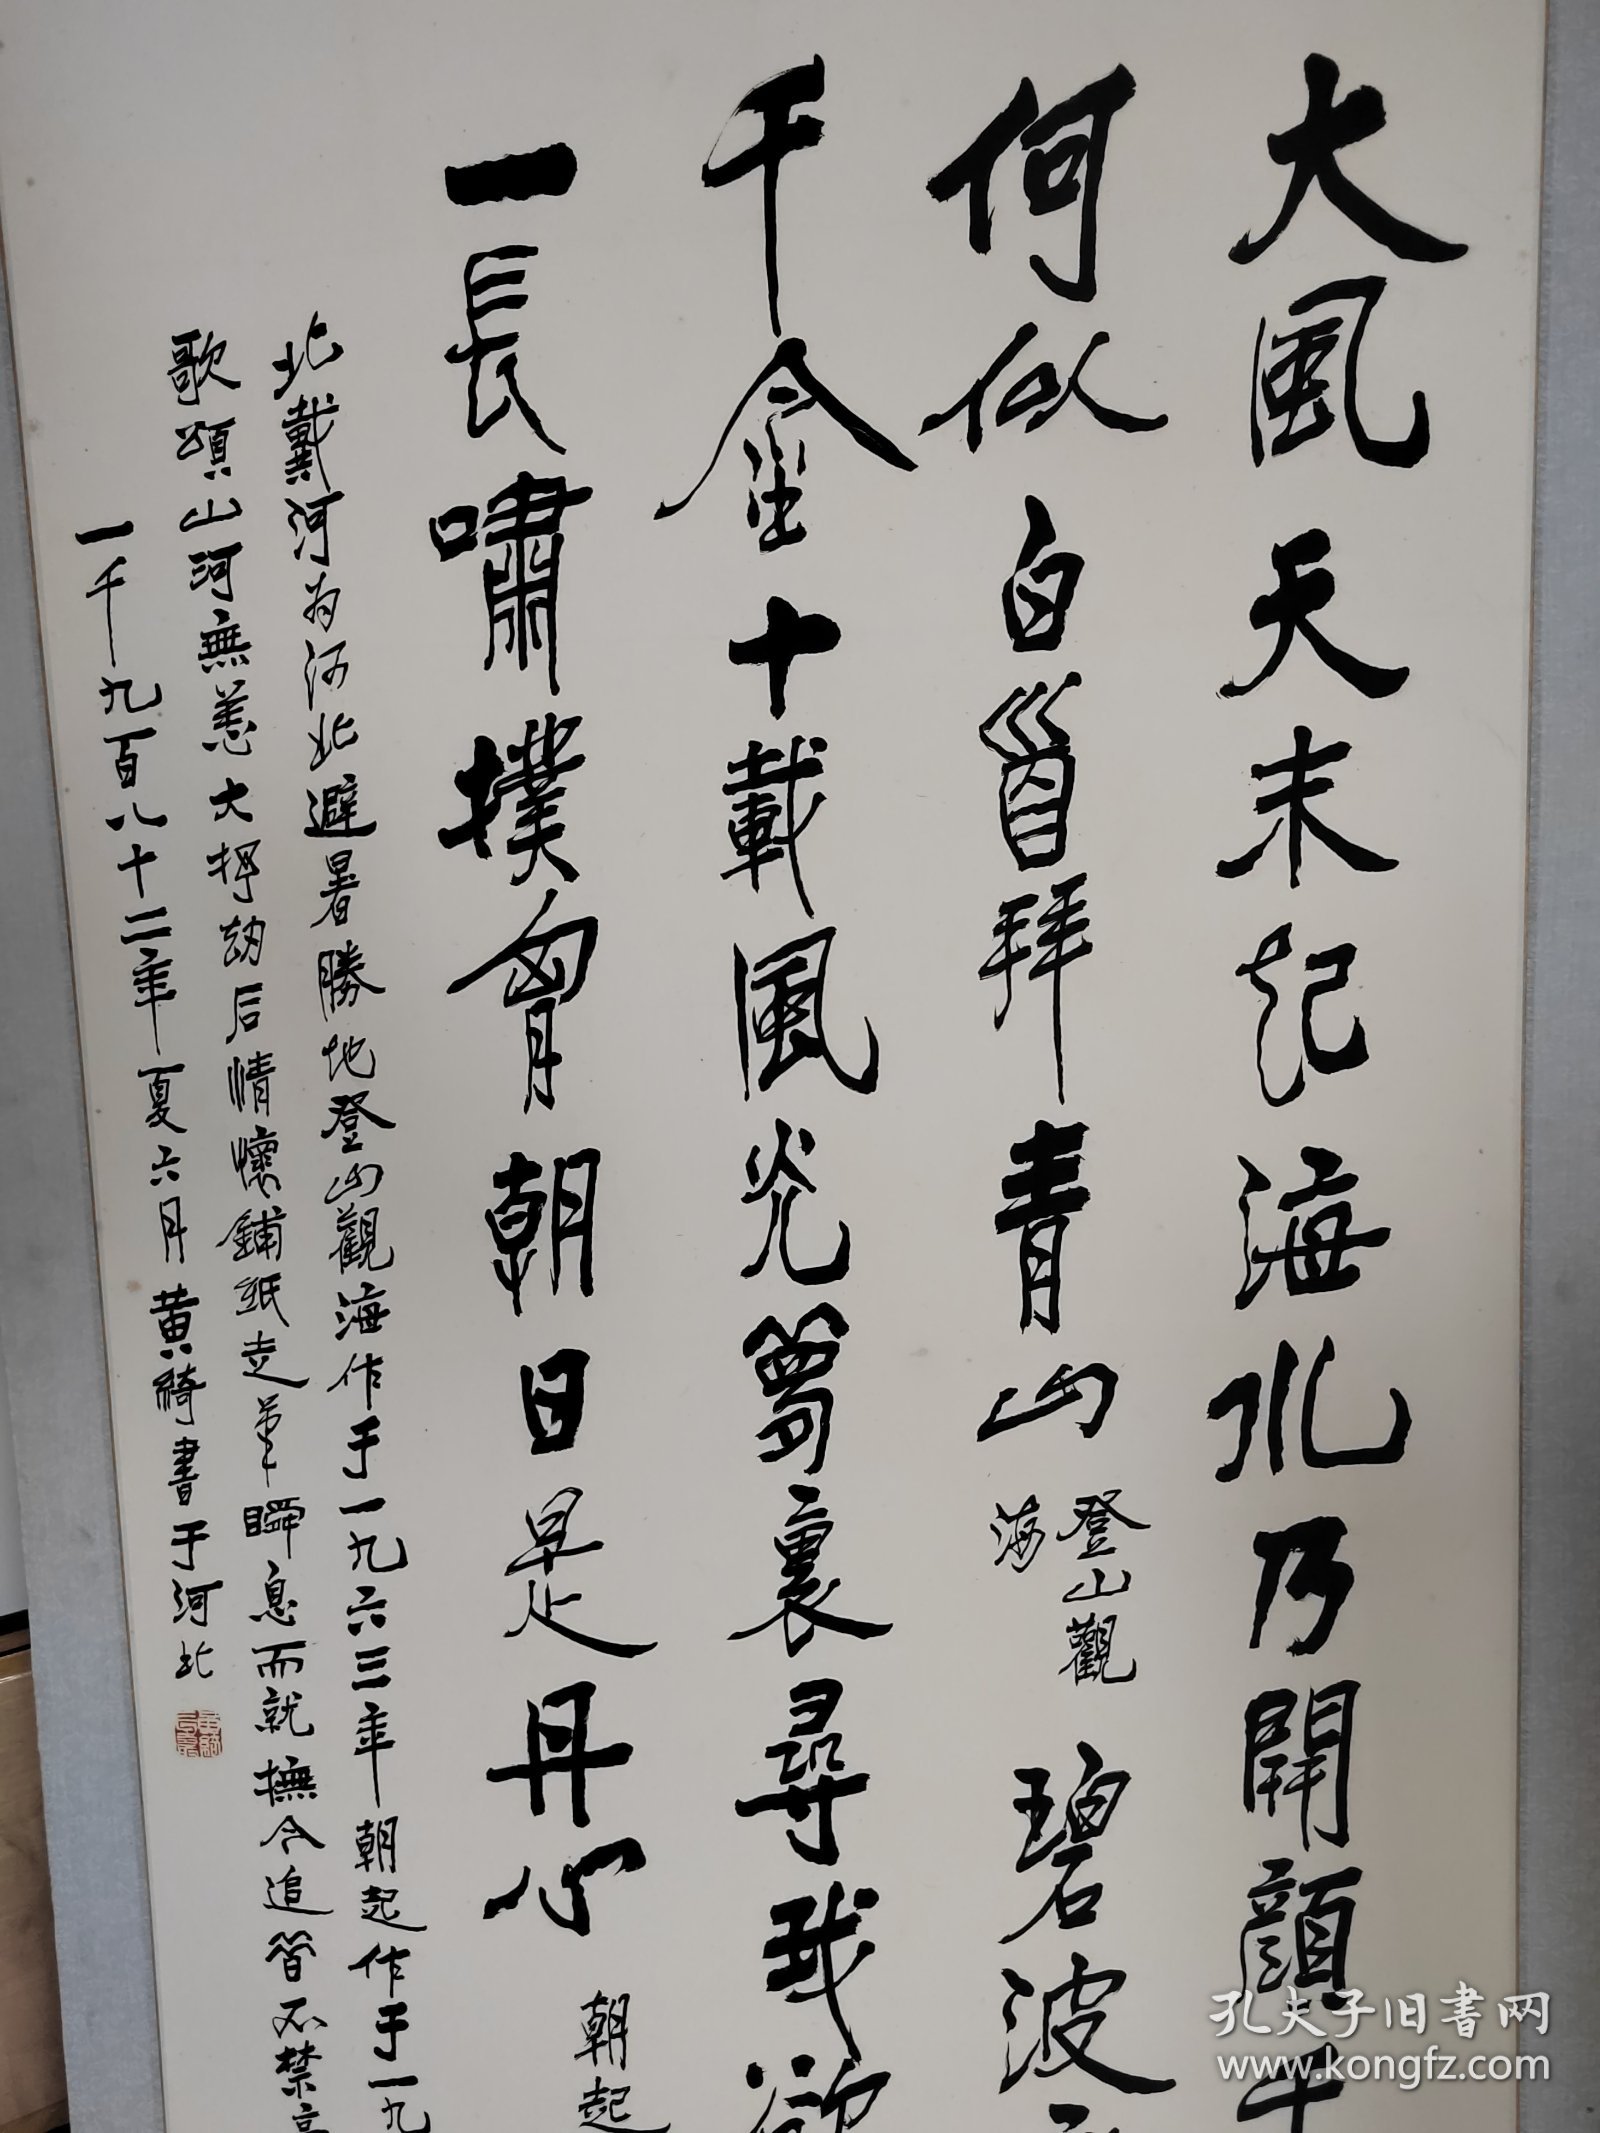 大風天末起海水乃開顔千
何似白首拜青山
登山觀
海
碧波
千金十載風光夢裏尋我欲
一長嘯撲胸朝日是丹心
朝起
北戴河为河北避暑勝地登山觀海作于一九六三年朝起作于一九
歌頌山河無恙大浮劫后情懷鋪紙走筆瞬息而就撫今追昔不禁
一千九百八十二年夏六月黄綺書于河北
孔夫子旧书网
www.kongfz.com